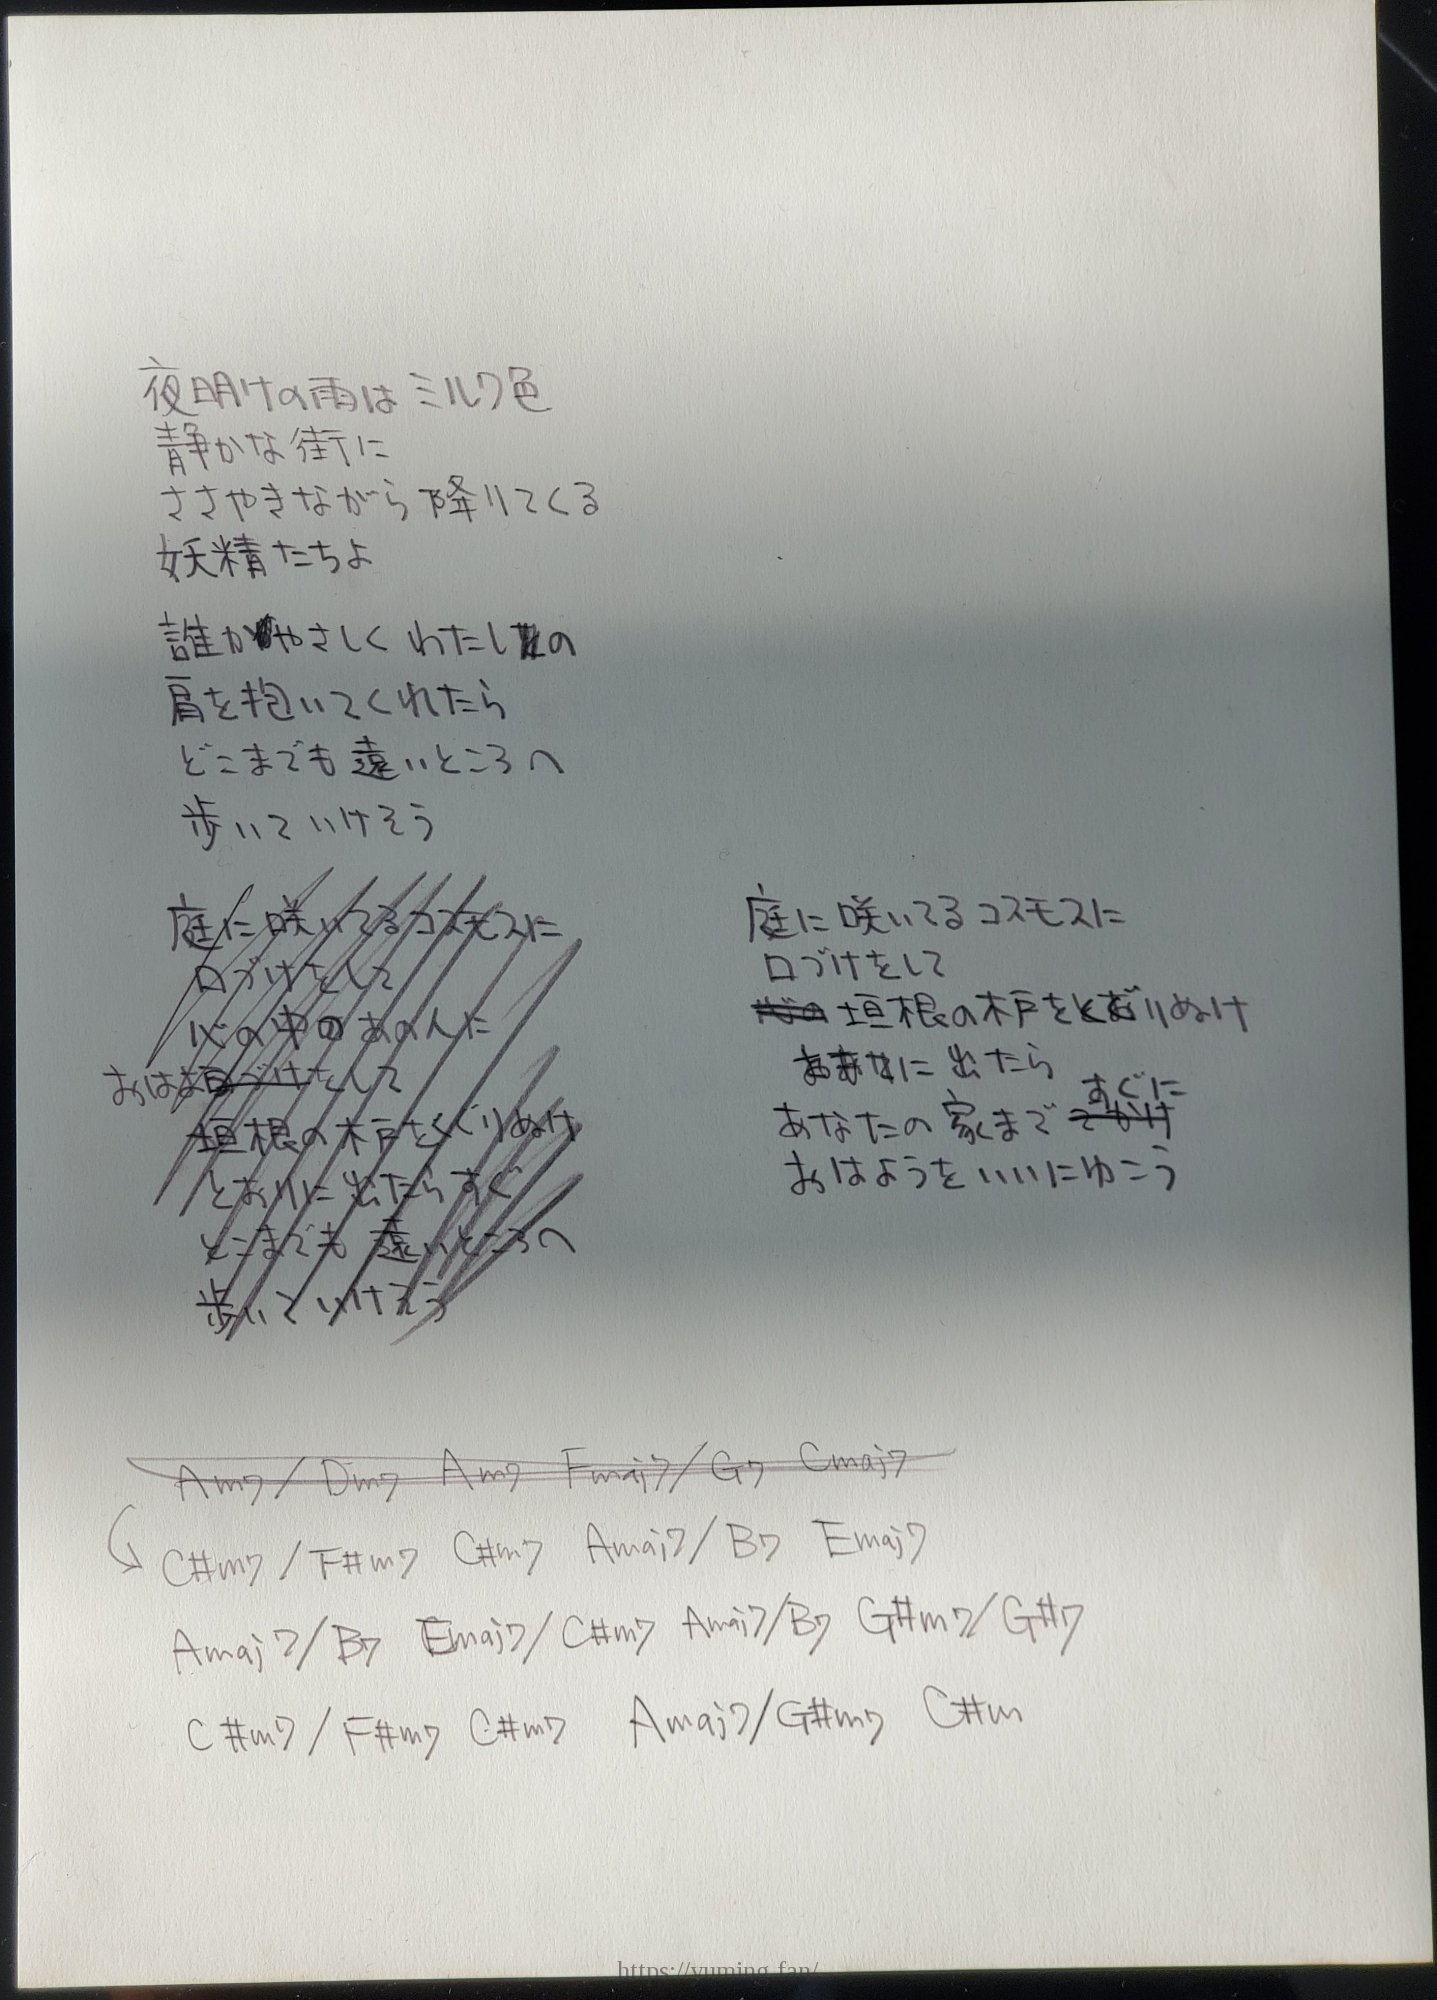 夜明けの雨はミルク色
静かな街に
ささやきながら降りてくる
妖精たちよ
誰かやさしくわたしの
肩を抱いてくれたら
どこまでも遠いところへ
歩いていけそう
庭に咲いてるコスモスに
口づけをして
心の中のあの人に
おはようをして
垣根の木戸をくぐりぬけ
とおりに出たらすぐ
どこまでも遠いところへ
歩いていけそう
庭に咲いてるコスモスに
口づけをして
垣根の木戸をくぐりぬけ
に出たら
すぐに
あなたの家まで でかけ
おはようをいいにゆこう
Am7/Dm7 Am7 Fmaj7/G7 Cmaj7
C#m7/F#m7 C#m7 Amaj7/B7 Emaj7
Amaj7/B7 Emaj7/C#m7 Amaj7/B7 G#m7/G#7
C#m7/F#m7 C#m7 Amaj7/G#m7 C#m
https://yuming.fan/